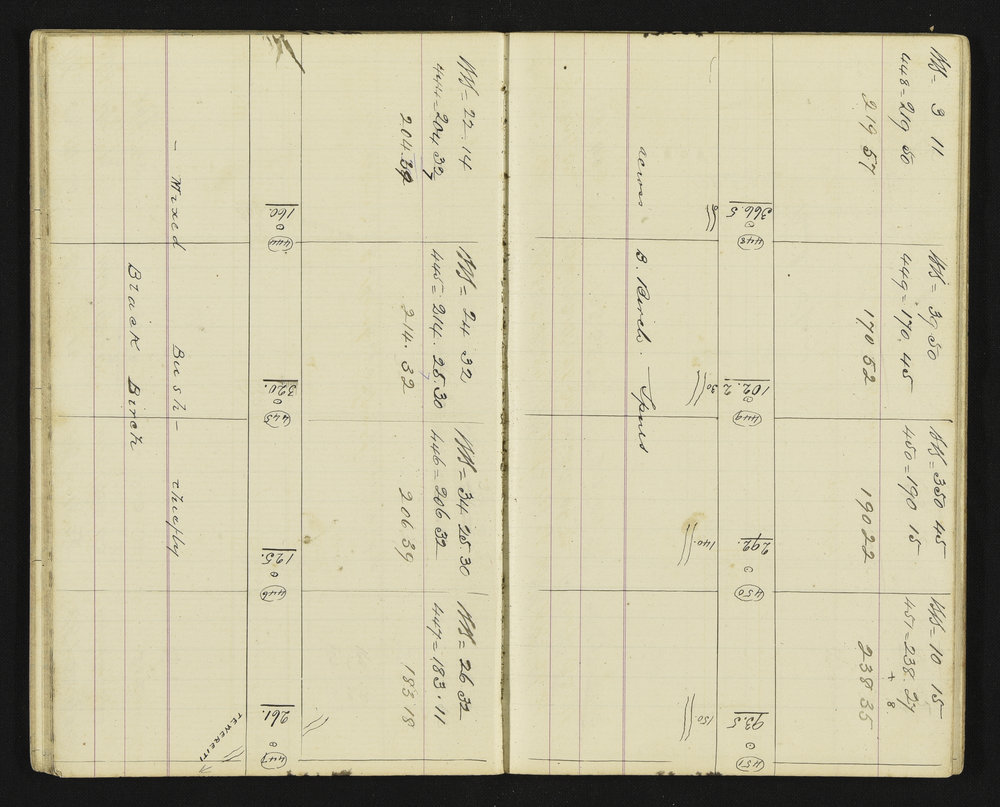 BS = 22.14
444 = 204 32
204.39
160.
444
BS = 24 32
445 = 214. 25.30
214. 32
320.
445
BS = 34 25.30
446 = 206 32
206 39
125.
446
BS = 26 32
447 = 183.11
183 18
261.
447
TEWEREITI
- Mixed Bush - chiefly
Black Birch
BS = 3 11
448 = 219 50
219 57
366.5
448
BS = 39 50
449 = 170. 45
170 52
102.2
449
30
BS = 350 45
450 = 190 15
190 22
292.
450
140.
BS = 10 15
451 = 238. 27
+ 8
238 35
93.5
451
150.
across B. Birch. Spurs